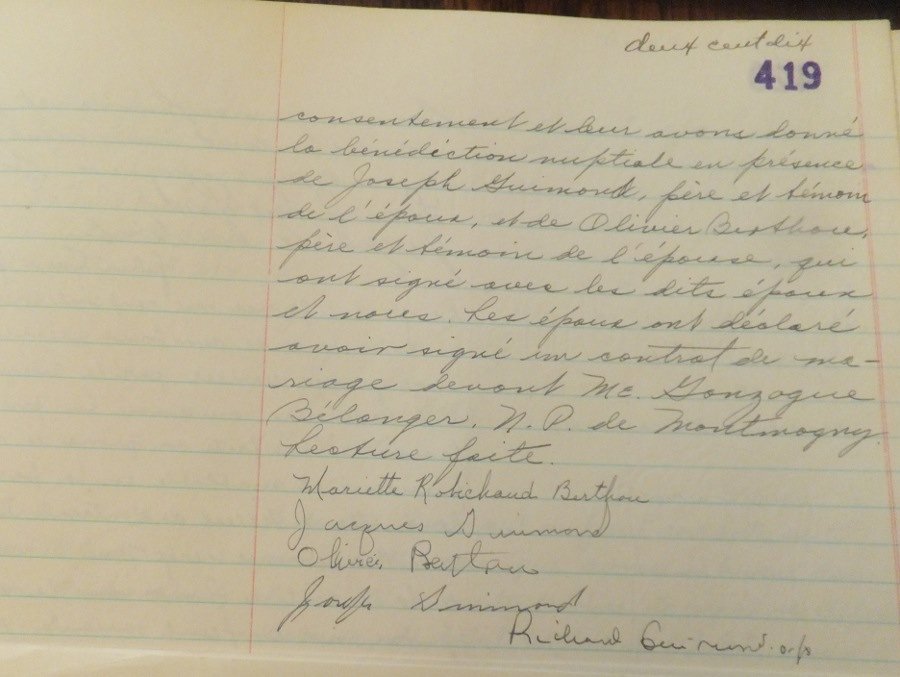 deux cent dix
419
consentement et leur avons donné
la bénédiction nuptiale en présence
de Joseph Guimond, père et témoin
de l'époux, et de Olivier Berthou,
père et témoin de l'épouse, qui
ont signé avec les dits époux
et nous. Les époux ont déclaré
avoir signé un contrat de ma-
riage devant Me. Gonzague
Bélanger, N. P. de Montmagny.
Lecture faite.
Mariette Robichaud Berthou
Jacques Guimond
Olivier Berthou
Joseph Guimond
Richard Guimond